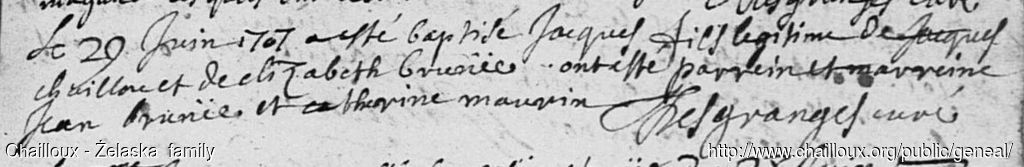 Le 29 Juin 1707 a esté baptisé Jacques fils legitime de Jacques
chaillou et de elizabeth brunëe ont esté parrein et marreine
jean brunëe et catherine maurin Desgranges curé
Chailloux - Żelaska family
http://www.chailloux.org/public/geneal/